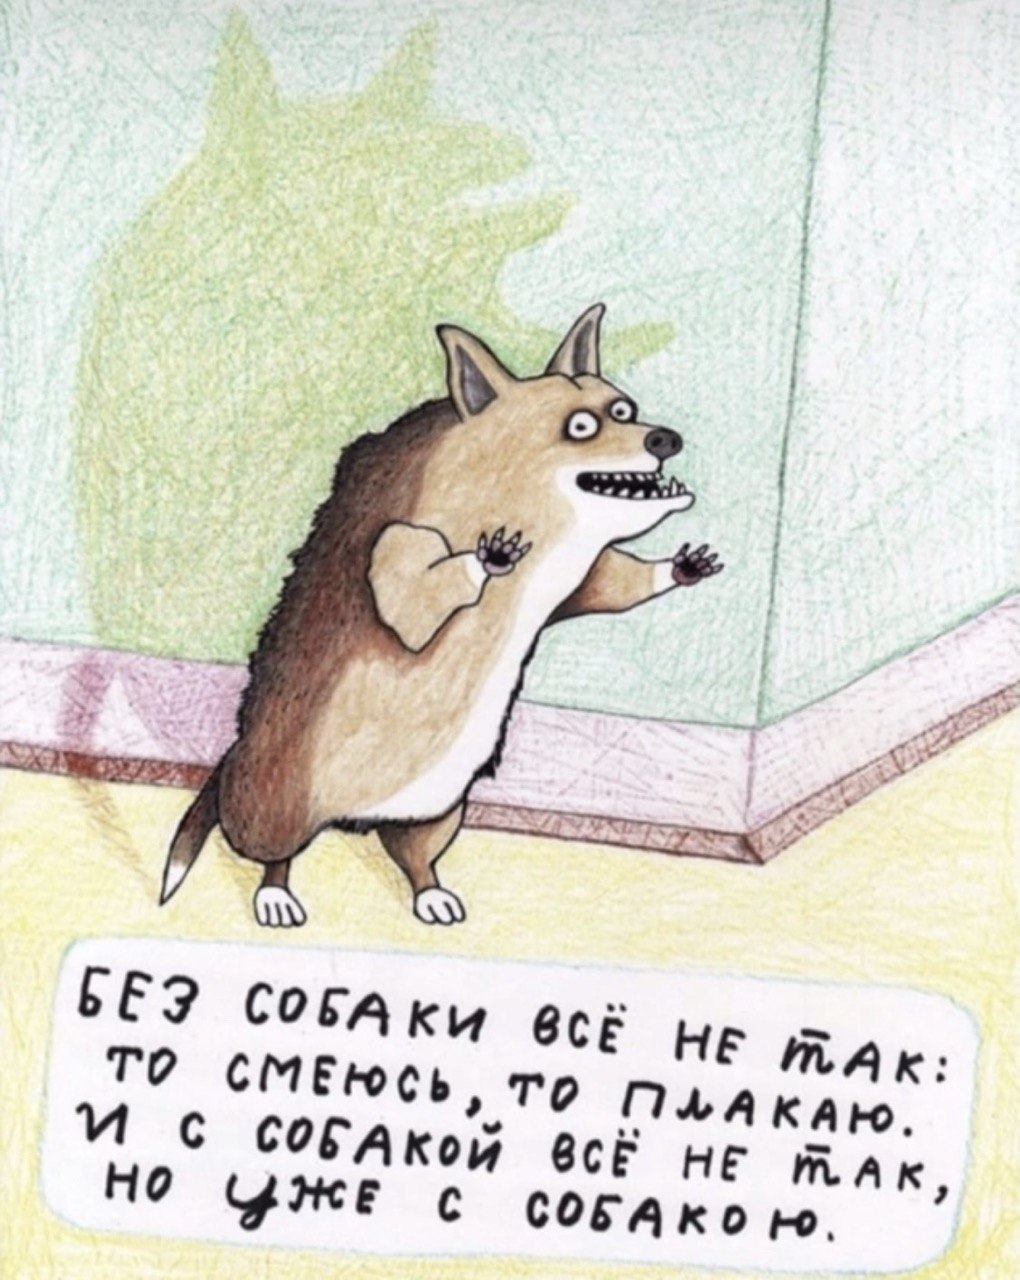 БЕЗ СОБАКИ ВСЁ НЕ ТАК:
ТО СМЕЮСЬ, ТО ПЛАКАЮ.
И С СОБАКОЙ ВСЁ НЕ ТАК,
НО УЖЕ С СОБАКОЮ.